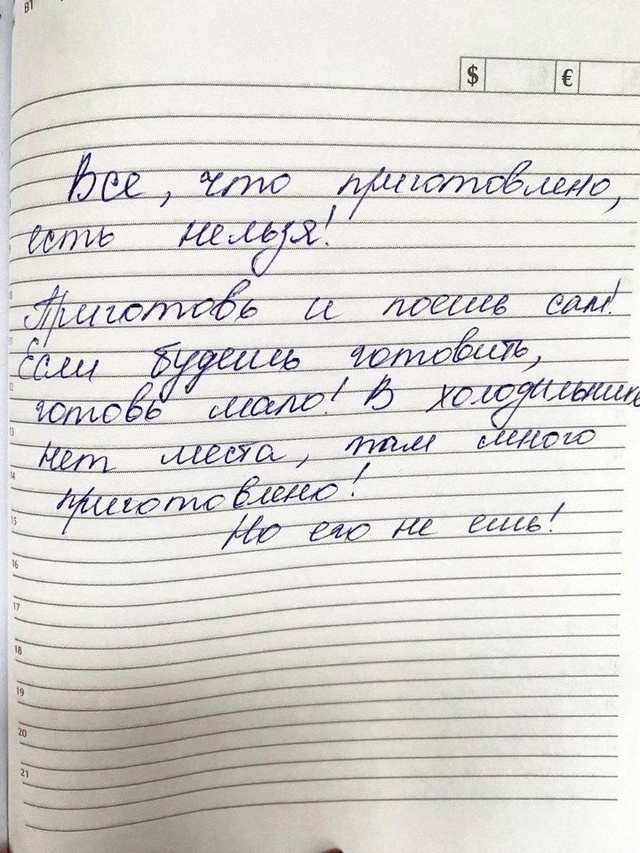 B1
$ €
Все, что приготовлено,
есть нельзя!
Приготовь и поешь сам!
Если будешь готовить,
готовь мало! В холодильнике
нет места, там много
приготовлено!
Но его не ешь!
12
13
14
15
16
17
18
19
20
21